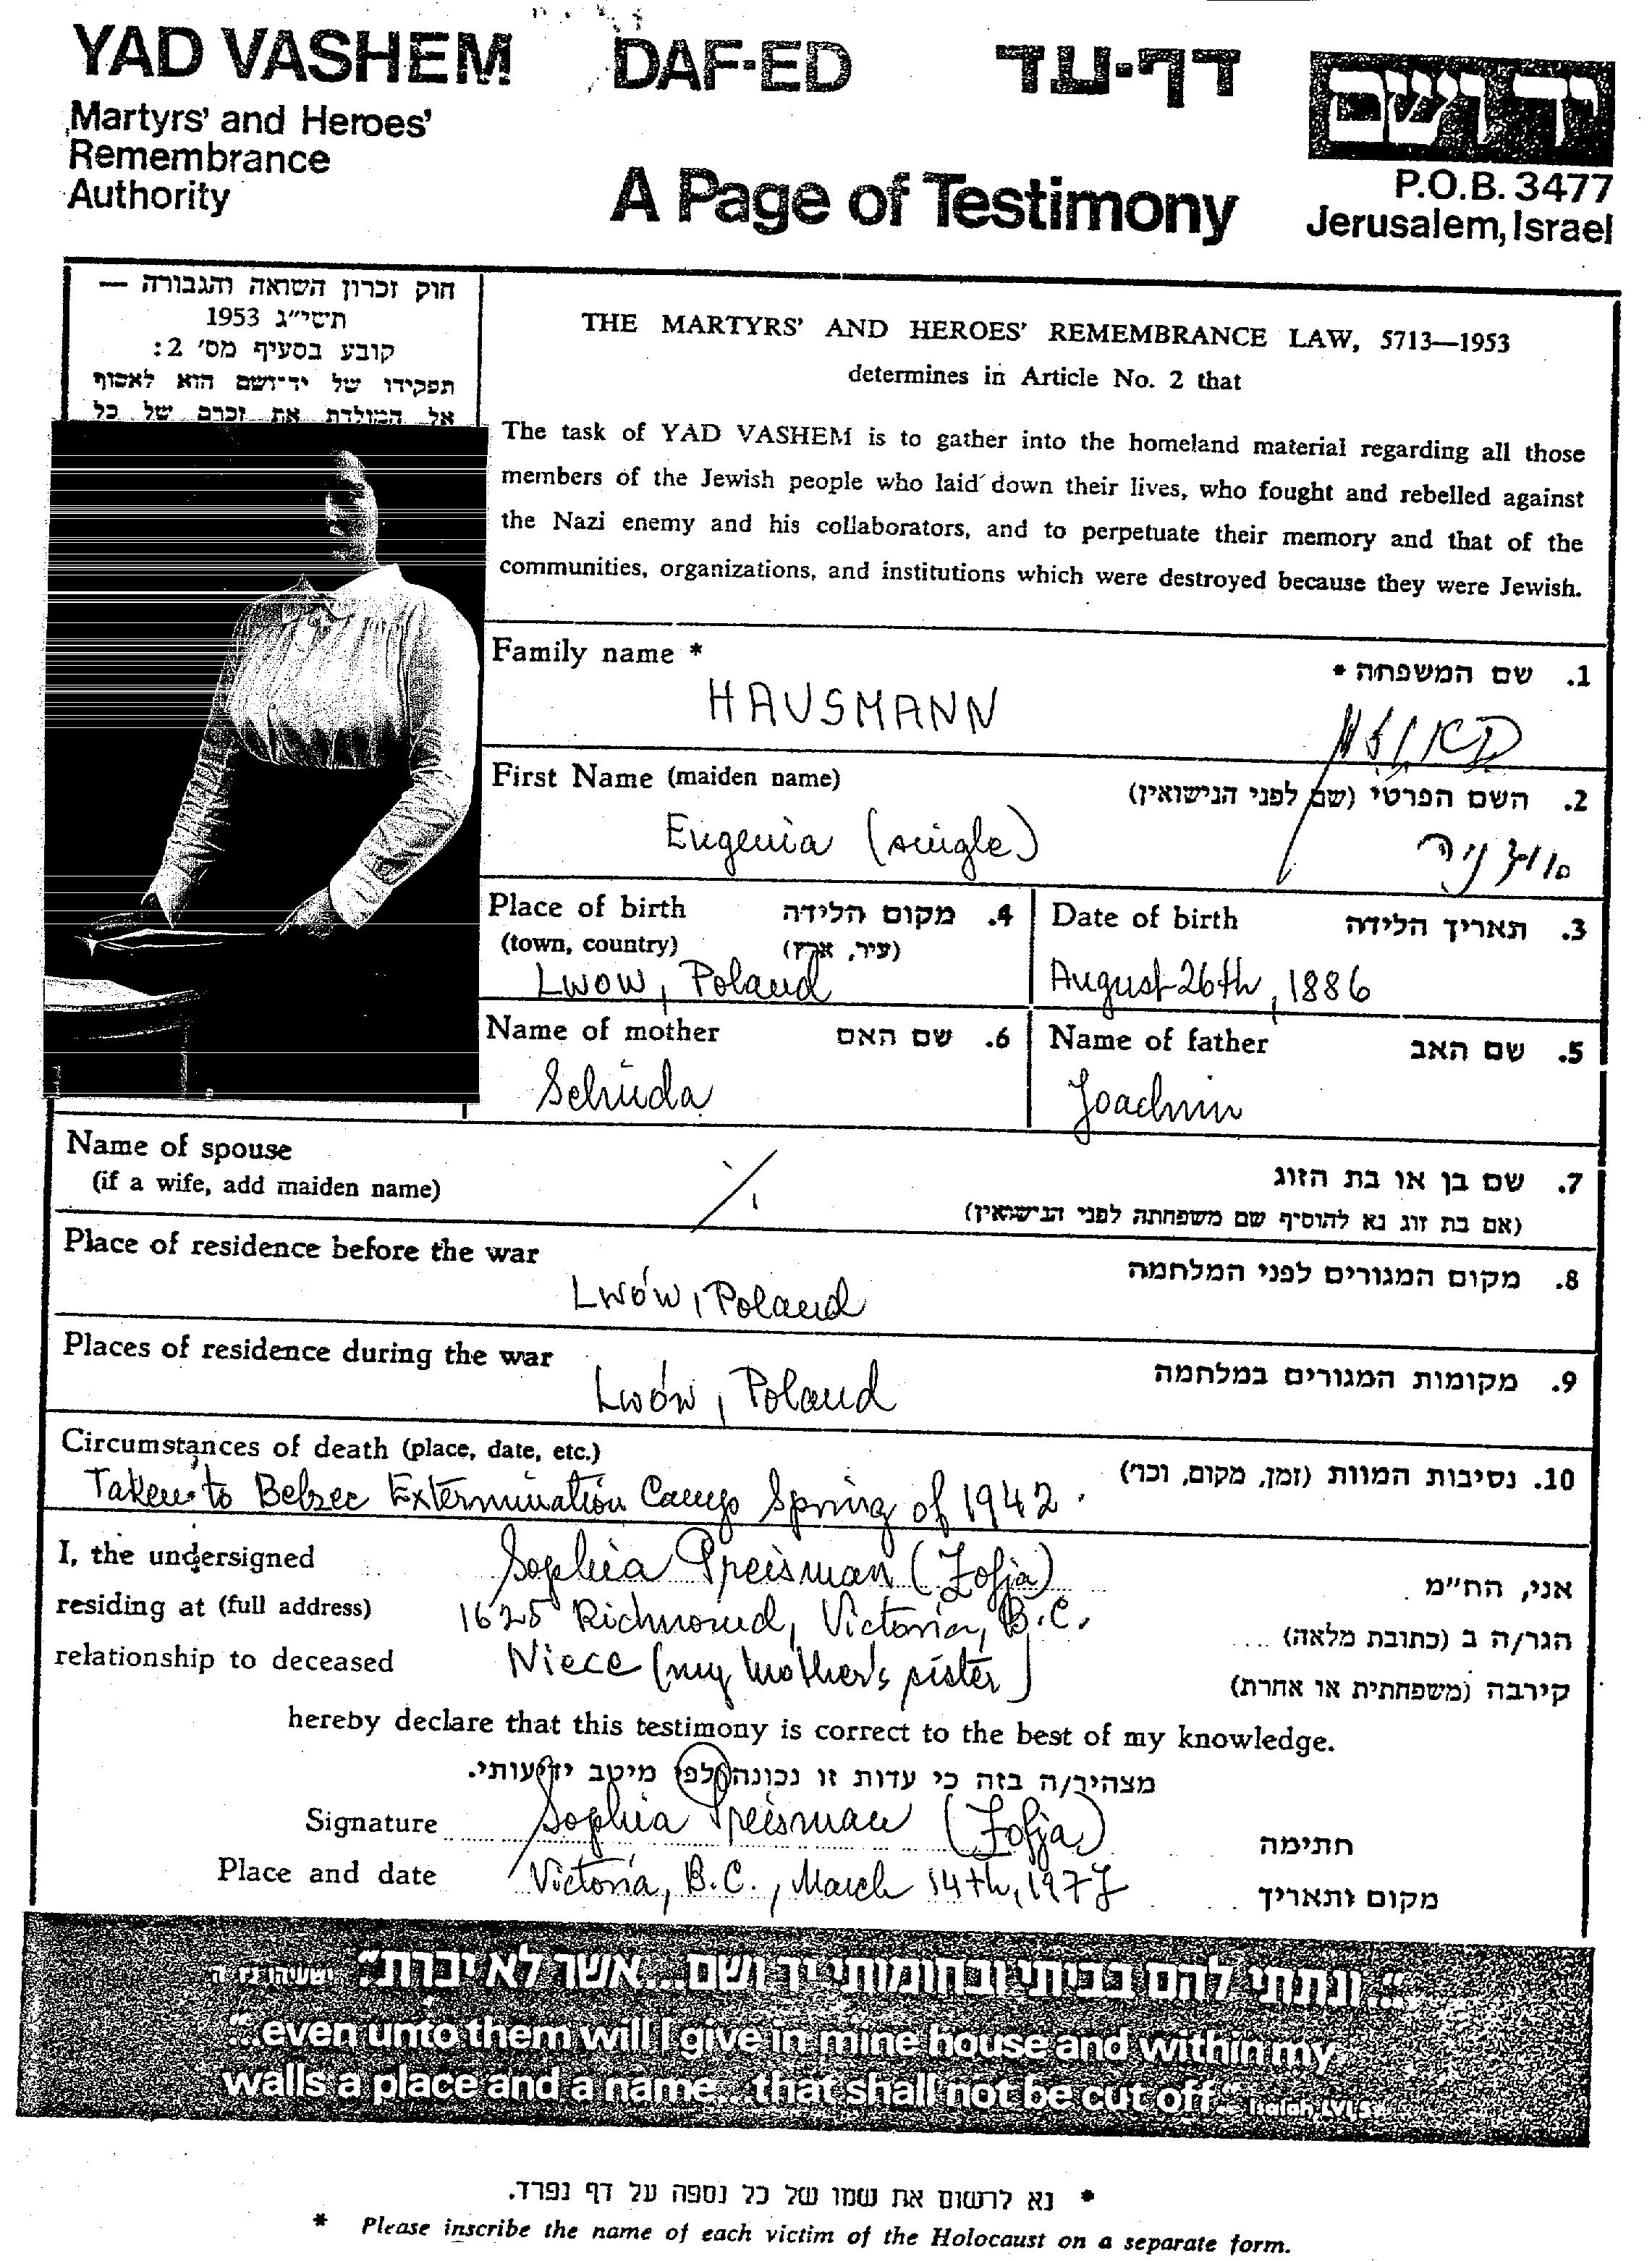 YAD VASHEM DAF-ED דף-עד
יד ושם
Martyrs' and Heroes'
Remembrance
Authority
A Page of Testimony
P.O.B. 3477
Jerusalem, Israel
חוק זכרון השואה והגבורה —
תשי״ג 1953
קובע בסעיף מס׳ 2:
תפקידו של יד־ושם הוא לאסוף
אל המולדת את זכרם של כל
THE MARTYRS' AND HEROES' REMEMBRANCE LAW, 5713—1953
determines in Article No. 2 that
The task of YAD VASHEM is to gather into the homeland material regarding all those
members of the Jewish people who laid down their lives, who fought and rebelled against
the Nazi enemy and his collaborators, and to perpetuate their memory and that of the
communities, organizations, and institutions which were destroyed because they were Jewish.
Family name * 1. שם המשפחה *
HAUSMANN
First Name (maiden name) 2. השם הפרטי (שם לפני הנישואין)
Eugenia (single)
Place of birth 4. מקום הלידה
(town, country) (עיר, ארץ)
Lwow, Poland
Date of birth 3. תאריך הלידה
August 26th, 1886
Name of mother 6. שם האם
Name of father 5. שם האב
Joachim
Name of spouse 7. שם בן או בת הזוג
(if a wife, add maiden name) (אם בת זוג נא להוסיף שם משפחתה לפני הנישואין)
Place of residence before the war 8. מקום המגורים לפני המלחמה
Lwów, Poland
Places of residence during the war 9. מקומות המגורים במלחמה
Lwów, Poland
Circumstances of death (place, date, etc.) 10. נסיבות המוות (זמן, מקום, וכו׳)
Taken to Belzec Extermination Camp Spring of 1942.
I, the undersigned Sophia Preisman (Zofja) אני, הח״מ
residing at (full address) 1625 Richmond, Victoria, B.C. הגר/ה ב (כתובת מלאה)
relationship to deceased Niece (my mother's sister) קירבה (משפחתית או אחרת)
hereby declare that this testimony is correct to the best of my knowledge.
מצהיר/ה בזה כי עדות זו נכונה לפי מיטב ידיעותי.
Signature Sophia Preisman (Zofja) חתימה
Place and date Victoria, B.C., March 14th, 1977 מקום ותאריך
״...ונתתי להם בביתי ובחומותי יד ושם...אשר לא יכרת״. ישעיהו נו ה
"...even unto them will I give in mine house and within my
walls a place and a name...that shall not be cut off." Isaiah, LVI, 5
* נא לרשום את שמו של כל נספה על דף נפרד.
* Please inscribe the name of each victim of the Holocaust on a separate form.